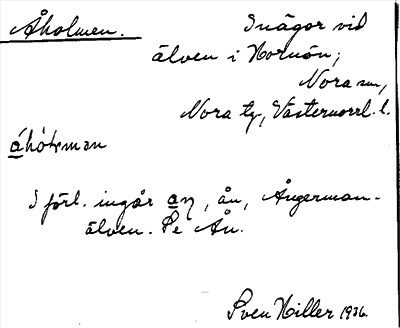 Åholmen. Inägor vid
älven i Hornön;
Nora sn,
Nora tg, Västernorrl. l.
áhóɫman
I förl. ingår aη, ån, Ångerman-
älven. Se Ån.
Sven Hiller 1936.